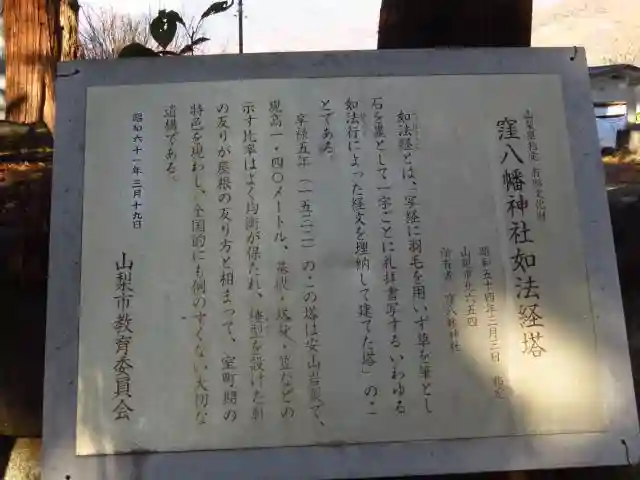 山梨県指定 有形文化財
窪八幡神社如法経塔
昭和五十四年二月三日 指定
山梨市北六五四
所有者 窪八幡神社
如法経とは、「写経に羽毛を用いず草を筆とし
石を墨として一字ごとに礼拝書写するいわゆる
如法行によった経文を埋納して建てた塔」のこ
とである。
享禄五年(一五三二)の、この塔は安山岩製で、
現高一・四〇メートル、基礎・塔身・笠などの
示す比率はよく均衡が保たれ、椽型を設けた軒
の反りが屋根の反り方と相まって、室町期の
特色を現わし、全国的にも例のすくない大切な
遺構である。
昭和六十一年三月十九日
山梨市教育委員会